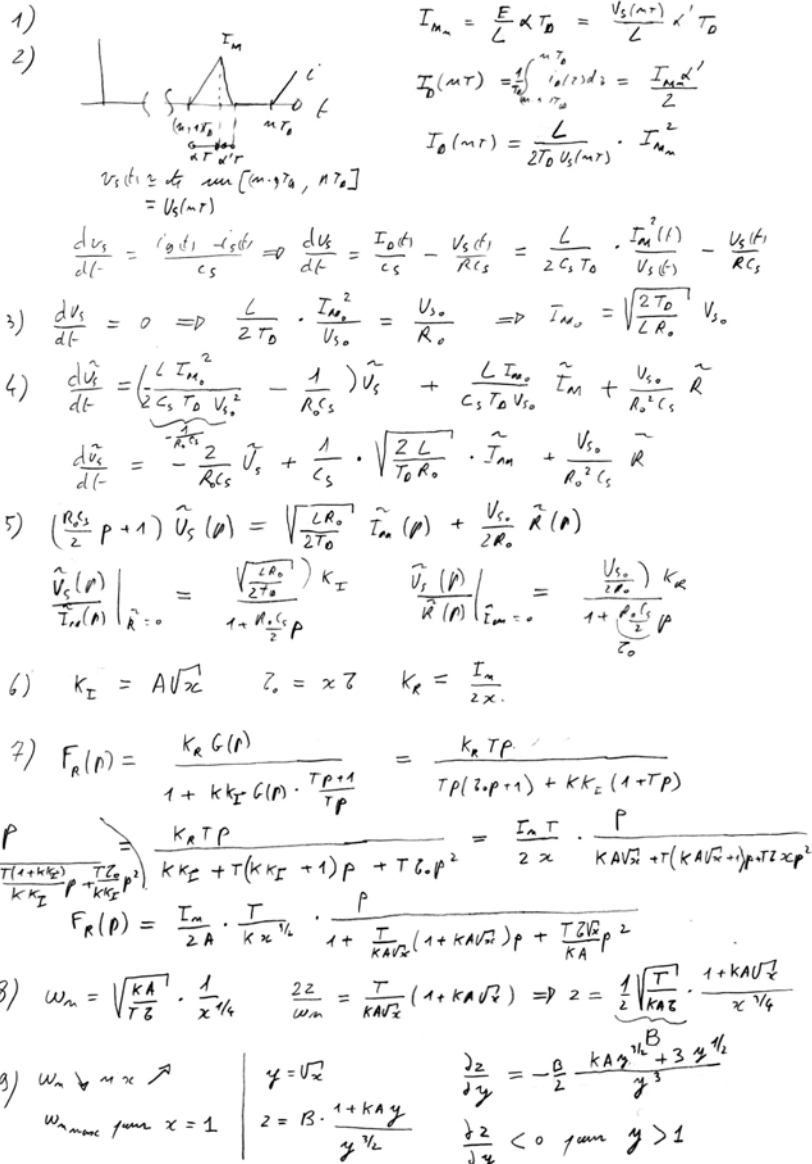 1) I_{M_n} = \frac{E}{L} α T_D = \frac{V_s(nT)}{L} α' T_D
2) I_M i t
(n-1)T_D n T_D
αT α'T
I_D(nT) = \frac{1}{T_D} \int_{(n-1)T_D}^{nT_D} i_D(z) dz = \frac{I_{M_n} α'}{2}
I_D(nT) = \frac{L}{2 T_D V_s(nT)} · I_{M_n}^2
v_s(t) ≃ cte sur [(n-1)T_D, nT_D]
= V_s(nT)
\frac{dv_s}{dt} = \frac{i_D(t) - i_s(t)}{C_s} ⇒ \frac{dv_s}{dt} = \frac{I_D(t)}{C_s} - \frac{V_s(t)}{R C_s} = \frac{L}{2 C_s T_D} · \frac{I_M^2(t)}{V_s(t)} - \frac{V_s(t)}{R C_s}
3) \frac{dv_s}{dt} = 0 ⇒ \frac{L}{2 T_D} · \frac{I_{M_0}^2}{V_{s_0}} = \frac{V_{s_0}}{R_0} ⇒ I_{M_0} = \sqrt{\frac{2 T_D}{L R_0}} V_{s_0}
4) \frac{d\tilde{v}_s}{dt} = (-\frac{L I_{M_0}^2}{2 C_s T_D V_{s_0}^2} - \frac{1}{R_0 C_s}) \tilde{v}_s + \frac{L I_{M_0}}{C_s T_D V_{s_0}} \tilde{I}_M + \frac{V_{s_0}}{R_0^2 C_s} \tilde{R}
-\frac{1}{R_0 C_s}
\frac{d\tilde{v}_s}{dt} = -\frac{2}{R_0 C_s} \tilde{v}_s + \frac{1}{C_s} · \sqrt{\frac{2 L}{T_D R_0}} · \tilde{I}_M + \frac{V_{s_0}}{R_0^2 C_s} \tilde{R}
5) (\frac{R_0 C_s}{2} p + 1) \tilde{V}_s(p) = \sqrt{\frac{L R_0}{2 T_D}} \tilde{I}_M(p) + \frac{V_{s_0}}{2 R_0} \tilde{R}(p)
\frac{\tilde{V}_s(p)}{\tilde{I}_M(p)} |_{\tilde{R}=0} = \frac{\sqrt{\frac{L R_0}{2 T_D}}) K_I}{1 + \frac{R_0 C_s}{2} p} \frac{\tilde{V}_s(p)}{\tilde{R}(p)} |_{\tilde{I}_M=0} = \frac{\frac{V_{s_0}}{2 R_0}) K_R}{1 + \frac{R_0 C_s}{2} p}
τ_0
6) K_I = A\sqrt{x} τ_0 = x τ K_R = \frac{I_M}{2x}.
7) F_R(p) = \frac{K_R G(p)}{1 + K K_I G(p) · \frac{Tp+1}{Tp}} = \frac{K_R Tp}{Tp(τ_0 p+1) + K K_I (1+Tp)}
\frac{p}{\frac{T(1+KK_I)}{K K_I} p + \frac{Tτ_0}{K K_I} p^2} ) = \frac{K_R T p}{K K_I + T(K K_I + 1) p + T τ_0 p^2} = \frac{I_M T}{2 x} · \frac{p}{KA\sqrt{x} + T(KA\sqrt{x}+1)p + Tτ x p^2}
F_R(p) = \frac{I_M}{2A} · \frac{T}{K x^{3/2}} · \frac{p}{1 + \frac{T}{KA\sqrt{x}} (1 + KA\sqrt{x}) p + \frac{Tτ\sqrt{x}}{KA} p^2}
8) ω_n = \sqrt{\frac{KA}{Tτ}} · \frac{1}{x^{1/4}} \frac{2z}{ω_n} = \frac{T}{KA\sqrt{x}} (1 + KA\sqrt{x}) ⇒ z = \frac{1}{2} \sqrt{\frac{T}{KAτ}} · \frac{1 + KA\sqrt{x}}{x^{3/4}}
B
9) ω_n ↘ si x ↗ y = \sqrt{x} \frac{∂z}{∂y} = -\frac{B}{2} \frac{KA y^{3/2} + 3 y^{1/2}}{y^3}
ω_{n max} pour x = 1 z = B · \frac{1 + KA y}{y^{3/2}} \frac{∂z}{∂y} < 0 pour y > 1